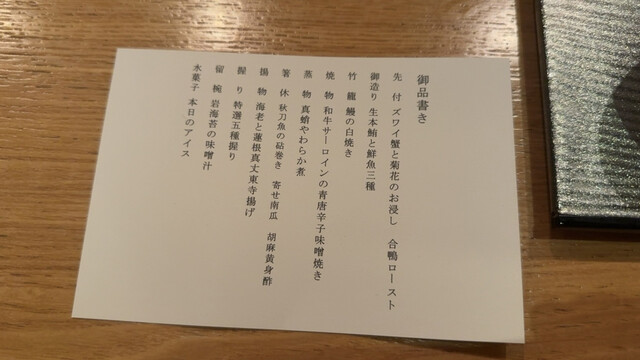 御品書き
先 付 ズワイ蟹と菊花のお浸し 合鴨ロースト
御造り 生本鮪と鮮魚三種
竹 籠 鰻の白焼き
焼 物 和牛サーロインの青唐辛子味噌焼き
蒸 物 真蛸やわらか煮
箸 休 秋刀魚の砧巻き 寄せ南瓜 胡麻黄身酢
揚 物 海老と蓮根真丈東寺揚げ
握 り 特選五種握り
留 椀 岩海苔の味噌汁
水菓子 本日のアイス